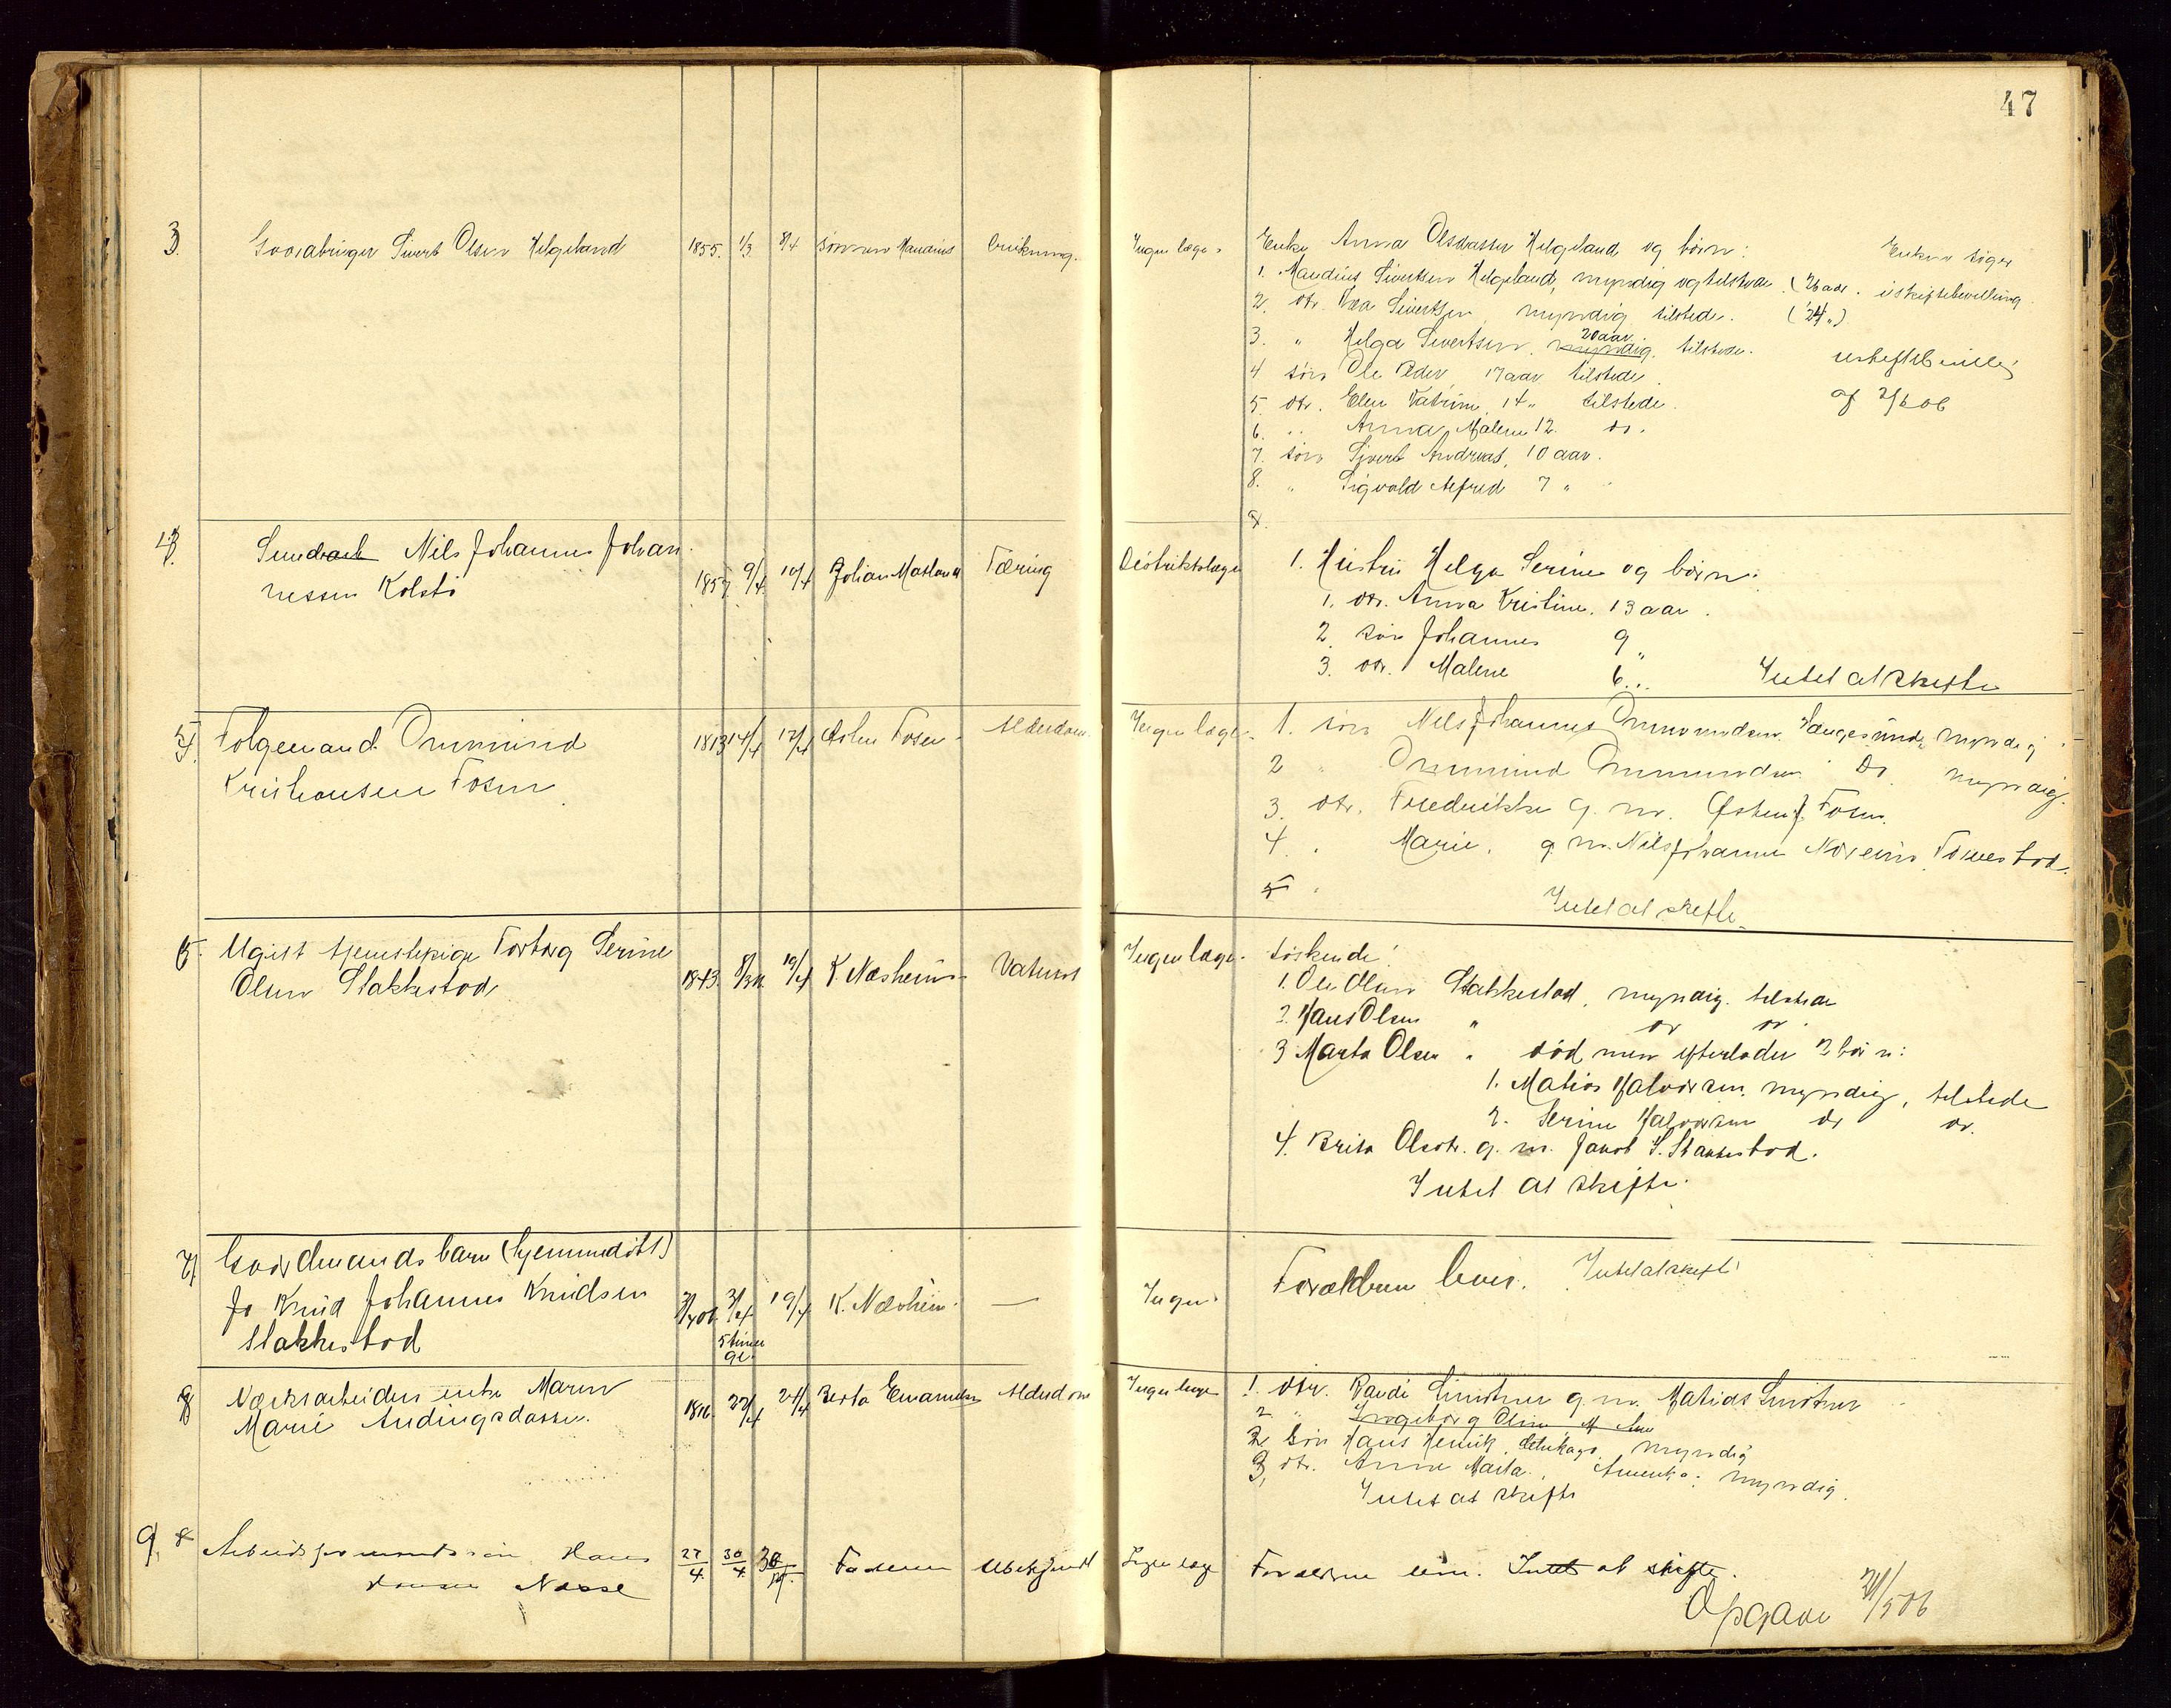 47
3. Gaardbruger Sivert Olsen Helgeland 1855. 1/3. 8/4 sønnen Maudius Ingen læge. Enke Anna Olsdatter Helgeland og børn: Enken søger
1. Maudius Sivertsen Helgeland, myndig og tilstede. (26 aar. uskiftebevilling.
2. dtr. Sivertsen, myndig tilstede. (24 ")
3. " Helga Sivertsen. 20 aar tilstede. uskiftebevilling
4 søn Ole Peder, 17 aar tilstede. af 2/6 06
5. dtr. Elen Katrine, 14 " tilstede.
6. " Anna Malene 12. do.
7. søn Sivert Andreas, 10 aar.
8. " Sigvald Alfred 7 "
4. Nils Johannes Johan-
nessen Kolstø 1857. 9/4. 10/4 Tæring Distriktslæge 1. Hustru Helga Serine og børn:
1. dtr. Anna Kristine. 13 aar.
2. søn Johannes 9 "
3. dtr. Malene 6 " Intet at skifte
5. Folgemand Ommund
Kristiansen Fosen 1813 14/4 17/4 Fosen Alderdom Ingen læge. 1. søn Nils Johannes Ommundsen, Haugesund, myndig.
2 " Ommund Ommundsen Do. myndig.
3. dtr. Fredrikke g. m. Østen J. Fosen.
4. " Marie. g. m. Nils Johannes
5 "
Intet at skifte.
6. Ugift tjenestepige Torborg Serine
Olsen Stakkestad 1843. 19/4 K. Næsheim Vatersot Ingen læge. søskende:
1. Ole Olsen Stakkestad, myndig. tilstede
2. Hans Olsen " do do.
3 Marta Olsen " død men efterlader 2 børn:
1. Matias Halvorsen, myndig, tilstede
2. Serine Halvorsen do do.
4. Brita Olsdtr. g. m. Jakob S. Stakkestad.
Intet at skifte.
7. Gaardmandsbarn (hjemmedøbt)
Jo Knud Johannes Knudsen
Stakkestad 3/4 06. 3/4 5 timer gl. 19/4 K. Næsheim. — Ingen. Forældrene lever. Intet at skifte
8 Værksarbeider enke Maren
Marie Andingsdatter. 1816. 22/4 24/4 Berta Alderdom Ingen læge 1. dtr. Randi Lindtner g. m. Matias Lindtner
2 " Ingeborg Oline
2 Søn Hans Henrik, myndig
3, dtr. Anne Marta., Amerika: myndig.
Intet at skifte
9. 8 Arbeidsformands søn Hans
Hansen 27/4. 30/4. 30/4. Faderen Ubekjendt Ingen læge Forældrene leve. Intet at skifte.
Opgave 21/5 06